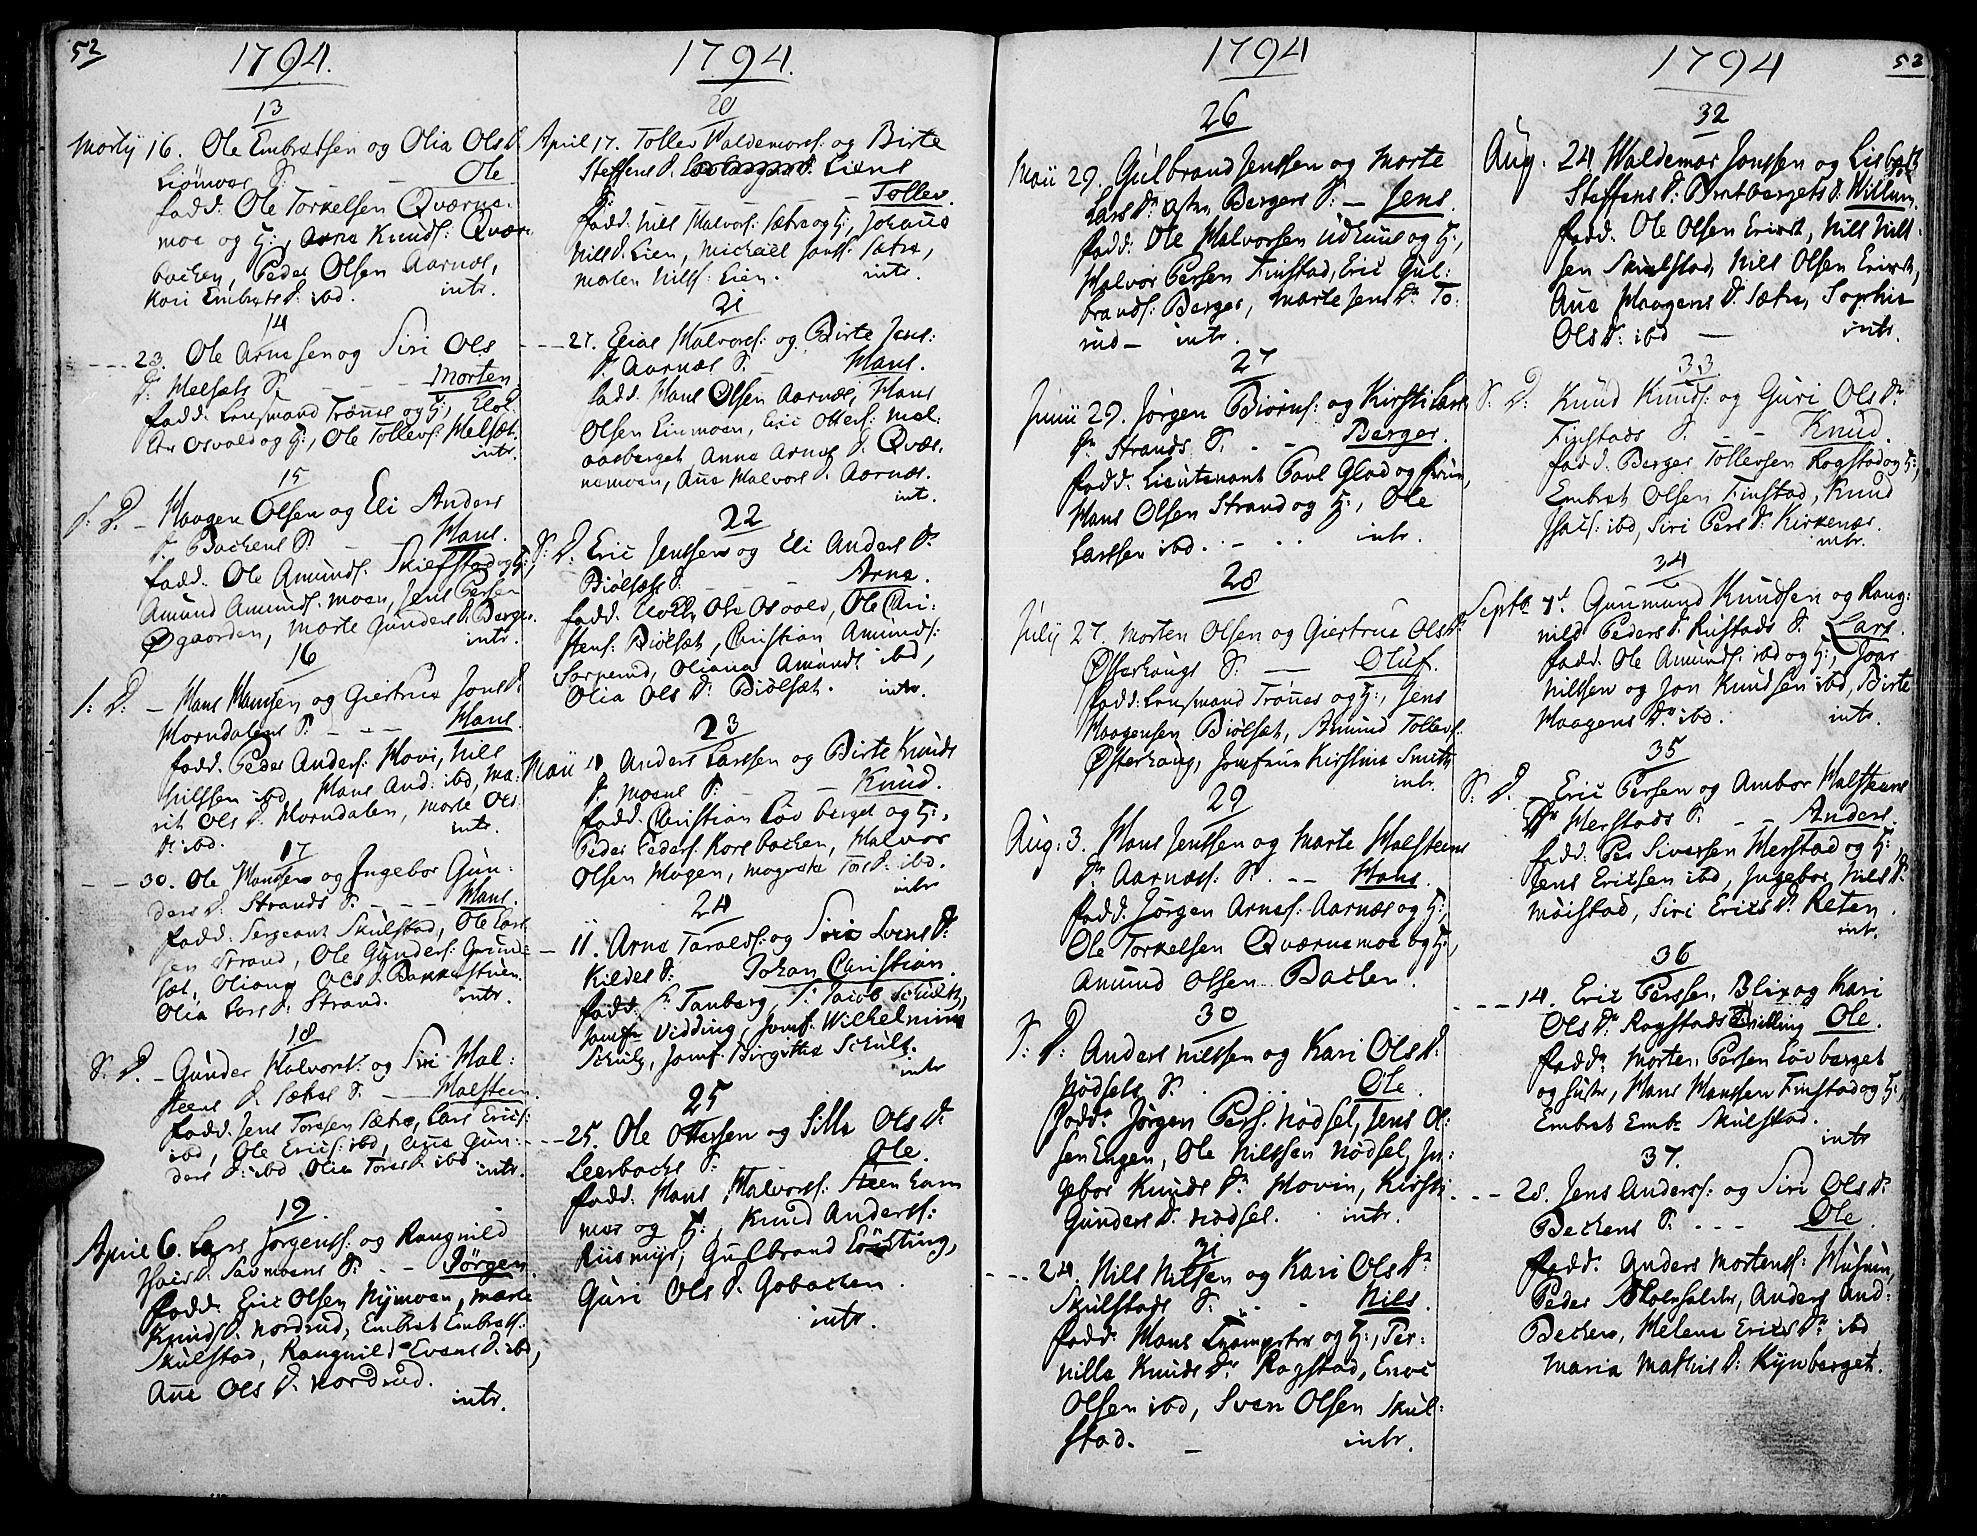 52
1794.
13
Martij 16. Ole Embretsen og Olia Ols D.
S. Ole
fadd. Ole Torkelsen Qværne
moe og H:, Arne Knuds: Qvær
bachen, Peder Olsen Aarnæs,
Kari Embrets D. ibd. intr.
14
23. Ole Arnesen og Siri Ols
D: Melsæts S. Morten
fadd. Lensmand Trønes og H:,
Osvold og H:, Ole Tollevs: Melsæt.
intr.
15
S: D. Haagen Olsen og Eli Anders
D. Bachens S. Hans.
fadd. Ole Amunds. Skiefstad og H:,
Amund Amunds. Moen, Jens Persen
Øgaarden, Marte Gunders D. Berger.
intr.
16
S: D: Hans Hansen og Giertrue Jons D.
Horndalens S. Hans.
fadd. Peder Anders: Hovi, Nils
Nilssen ibd, Hans And: ibd, Ma:
rit Ols D. Horndalen, Marte Ols
D. ibd. intr.
17
30. Ole Hanssen og Ingebor Gun:
ders D. Strands S. Hans.
fadd. Sergeant Skulstad, Ole Lars
sen Strand, Ole Gunders:
sæt, Oliana Ols D. Bakkestuen
Olia Lars D. Strand. intr.
18
S. D. Gunder Halvors: og Siri Hal:
steens D. Sætres S. Halsteen.
fadd. Jens Toresen Sætre, Lars Erics:
ibd, Ole Erics: ibd, Ane Gun:
ders D: ibd Olia Tores D. ibd. intr.
19.
April 6. Lars Jørgens: og Rangnild
D. S. Jørgen.
fadd. Eric Olsen Nymoen, Marte
Knuds D. Nordrud, Embret Embrets:
Skulstad, Rangnild Evens D. ibd,
Ane Ols D. Nordrud.
intr.
1794.
20
April 17. Tollev Waldemars: og Birte
Steffens D. Liens
S. Tollev.
fadd. Nils Halvors: Sætre og H:, Johane
Nils D. Lien, Michael Jons: Sætre,
Maten Nills: Lien. intr.
21
27. Elias Halvors: og Birte Jens:
D. Aarnæs S. Hans.
fadd. Hans Olsen Aarnæs, Hans
Olsen Einmoen, Eric Otters: Mal:
aasberget Anne Arnes D. Qvær:
nemoen, Ane Halvors D. Aarnæs.
int.
22
S: D: Eric Jenssen og Eli Anders D.
Biølsæts D. Arne.
fadd. Ole Osvold, Ole Chri:
stens: Biølsæt, Christian Amunds:
Sorperud, Oliana Amunds ibd,
Olia Ols D. Biølsæt. intr.
23
Maii Anders Larssen og Birte Knuds
D. Moens S. Knud.
fadd. Christian Løvberget og H:,
Peder Peders: Korsbachen, Halvor
Olsen Hagen, Magrete Tors D. ibd.
intr
24
11. Arne Taralds: og Siri Svens D.
Kildes S: Johan Christian
fadd. Hr Tanberg, S: Jacob Schultz,
Jomfr Vidding, Jomf. Wilhelmine
Schultz, Jomf. Birgitha Schult.
intr
25
25. Ole Ottersen og Sille Ols D.
Leerbachs S. Ole.
fadd. Hans Halvors: Steenham
mer og H:, Knud Anders:
Riismyr, Gulbrand
Guri Ols D. Gobachen.
intr.
1794
26
Maii 29. Gulbrand Jenssen og Marte
Lars Dr. Bergers S. Jens.
fadd. Ole Halvorsen Udhuus og H:,
Halvor Persen Finstad, Eric Gul:
brands: Berger, Marte Jens Dr. To:
rud intr.
27
Junii 29. Jørgen Biørns: og Kirsti Lars
D. Strands S. Berger.
fadd. Lieutenant Povl Glad og Frue,
Hans Olsen Strand og H:, Ole
Larssen ibd. intr.
28
Julij 27. Morten Olsen og Giertrue Ols Dr.
Østerhaugs S. Oluf.
fadd: Lensmand Trønes og H:, Jens
Haagensen Biølsæt, Amund Tollevs:
Østerhaug, Jomfrue Kirstine Smith
intr.
29
Aug: 3. Hans Jenssen og Marte Halsteens
Dr. Aarnæss: S. Hans.
fadd. Jørgen Arnes: Aarnæs og H:,
Ole Torkelsen Qværnemoe og H:,
Amund Olsen Bachen.
30
S: D: Anders Nilssen og Kari Ols D:
Nødsels S. Ole
fadd. Jørgen Pers: Nødsel, Jens Ol:
sen Engen, Ole Nilssen Nødsel, In:
gebor Knuds Dr. Hovin, Kirsti
Gunders D. Nødsel. intr.
31
24. Nils Nilsen og Kari Ols Dr.
Skulstads S. Nils.
fadd: Hans Trompeter og H:, Per:
nille Knuds Dr. Rogstad, Enoc
Olsen ibd, Sven Olsen Skul:
stad. intr.
53
1794
32
Aug. 24 Waldemar Jonssen og Lisbeth
Steffens D. Bratbergets S. Willum.
fadd. Ole Olsen Ericst, Nils Nils:
sen Skulstad, Nils Olsen Ericst,
Ane Haagens D. Sætre, Sophie
Ols D. ibd intr.
33.
S. D: Knud Knuds: og Guri Ols Dr.
Finstads S. Knud.
fadd. Berger Tollevsen Rogstad og H:,
Embret Olsen Finstad, Knud
ibd, Siri Pers D. Kirkenæs.
intr.
34
Septb. 7d. Gunmund Knudsen og Rang:
nild Peders D. Rustads S. Lars.
fadd. Ole Amunds. ibd og H:, Joar
Nilssen og Jon Knudsen ibd, Birte
Haagens Dr. ibd. intr.
35
S. D. Eric Persen og Ambor Halsteens
Dr Herstads S. Anders.
fadd: Per Siversen Herstad og H:,
Jens Ericsen ibd, Ingebor Nils D.
Møistad, Siri Erics D. Reten.
intr.
36
14. Eric Perssen, Blix og Kari
Ols Dr. Rogstads Tvilling Ole.
fadd. Morten Persen Løvberget
og Hustr, Hans Hanssen Finstad og H:,
Embret Emb: Skulstad.
intr
37.
28. Jens Anders: og Siri Ols Dr.
Bechens S. Ole
fadd. Anders Mortens: Husum,
Peder Skolehalder, Anders And:
Bechen, Helene Erics Dr. ibd
Maria Mathis D: Kynberget.